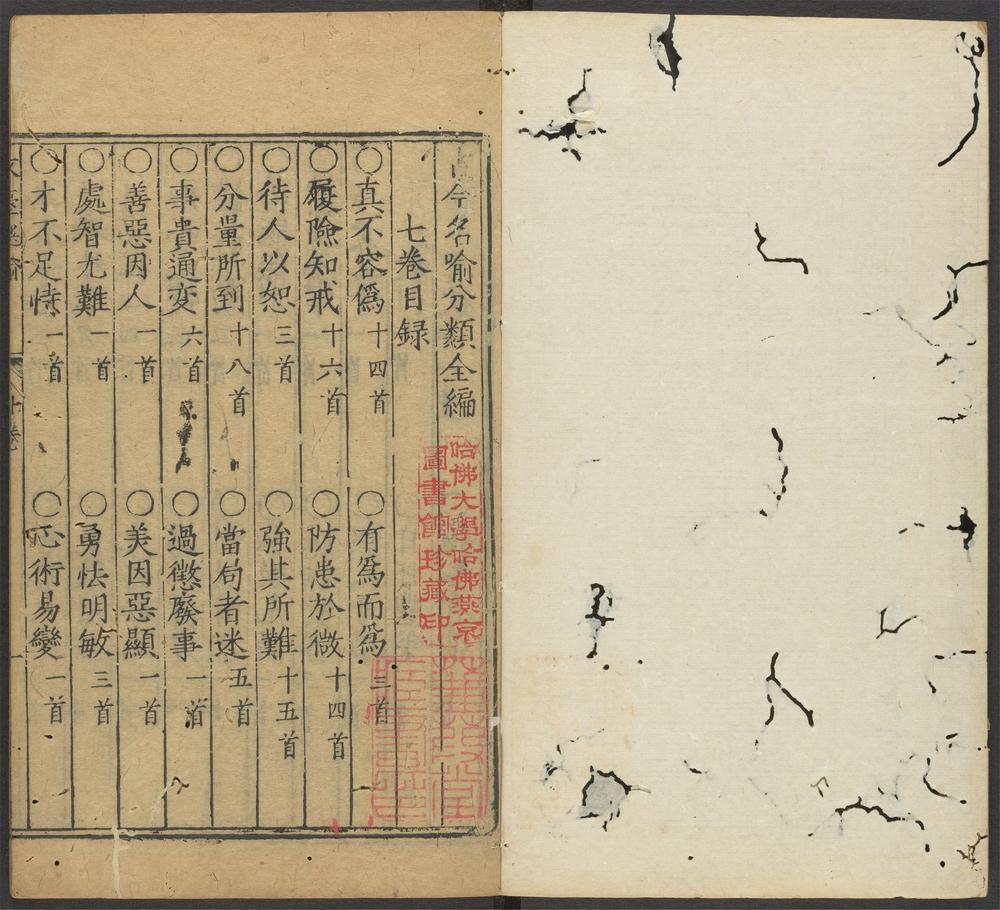 古今名喻分類全編
七卷目録
○真不容僞十四首 ○有爲而爲三首
○履險知戒十六首 ○防患於微十四首
○待人以恕三首 ○強其所難十五首
○分量所到十八首 ○當局者迷五首
○事貴通変六首 ○過懲廢事一首
○善惡因人一首 ○美因惡顯一首
○處智尤難一首 ○勇怯明敏三首
○才不足恃一首 ○心術易變一首
哈佛大學哈佛燕京
圖書館珍藏印